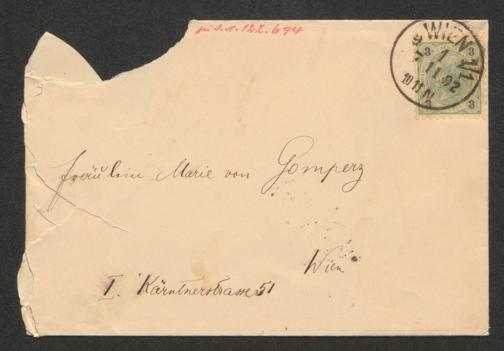 zu J.N. 122.694
WIEN 1/1
1
11.92
10 11 N
3 3
3
Fräulein Marie von Gomperz
Wien
I. Kärntnerstrasse 51